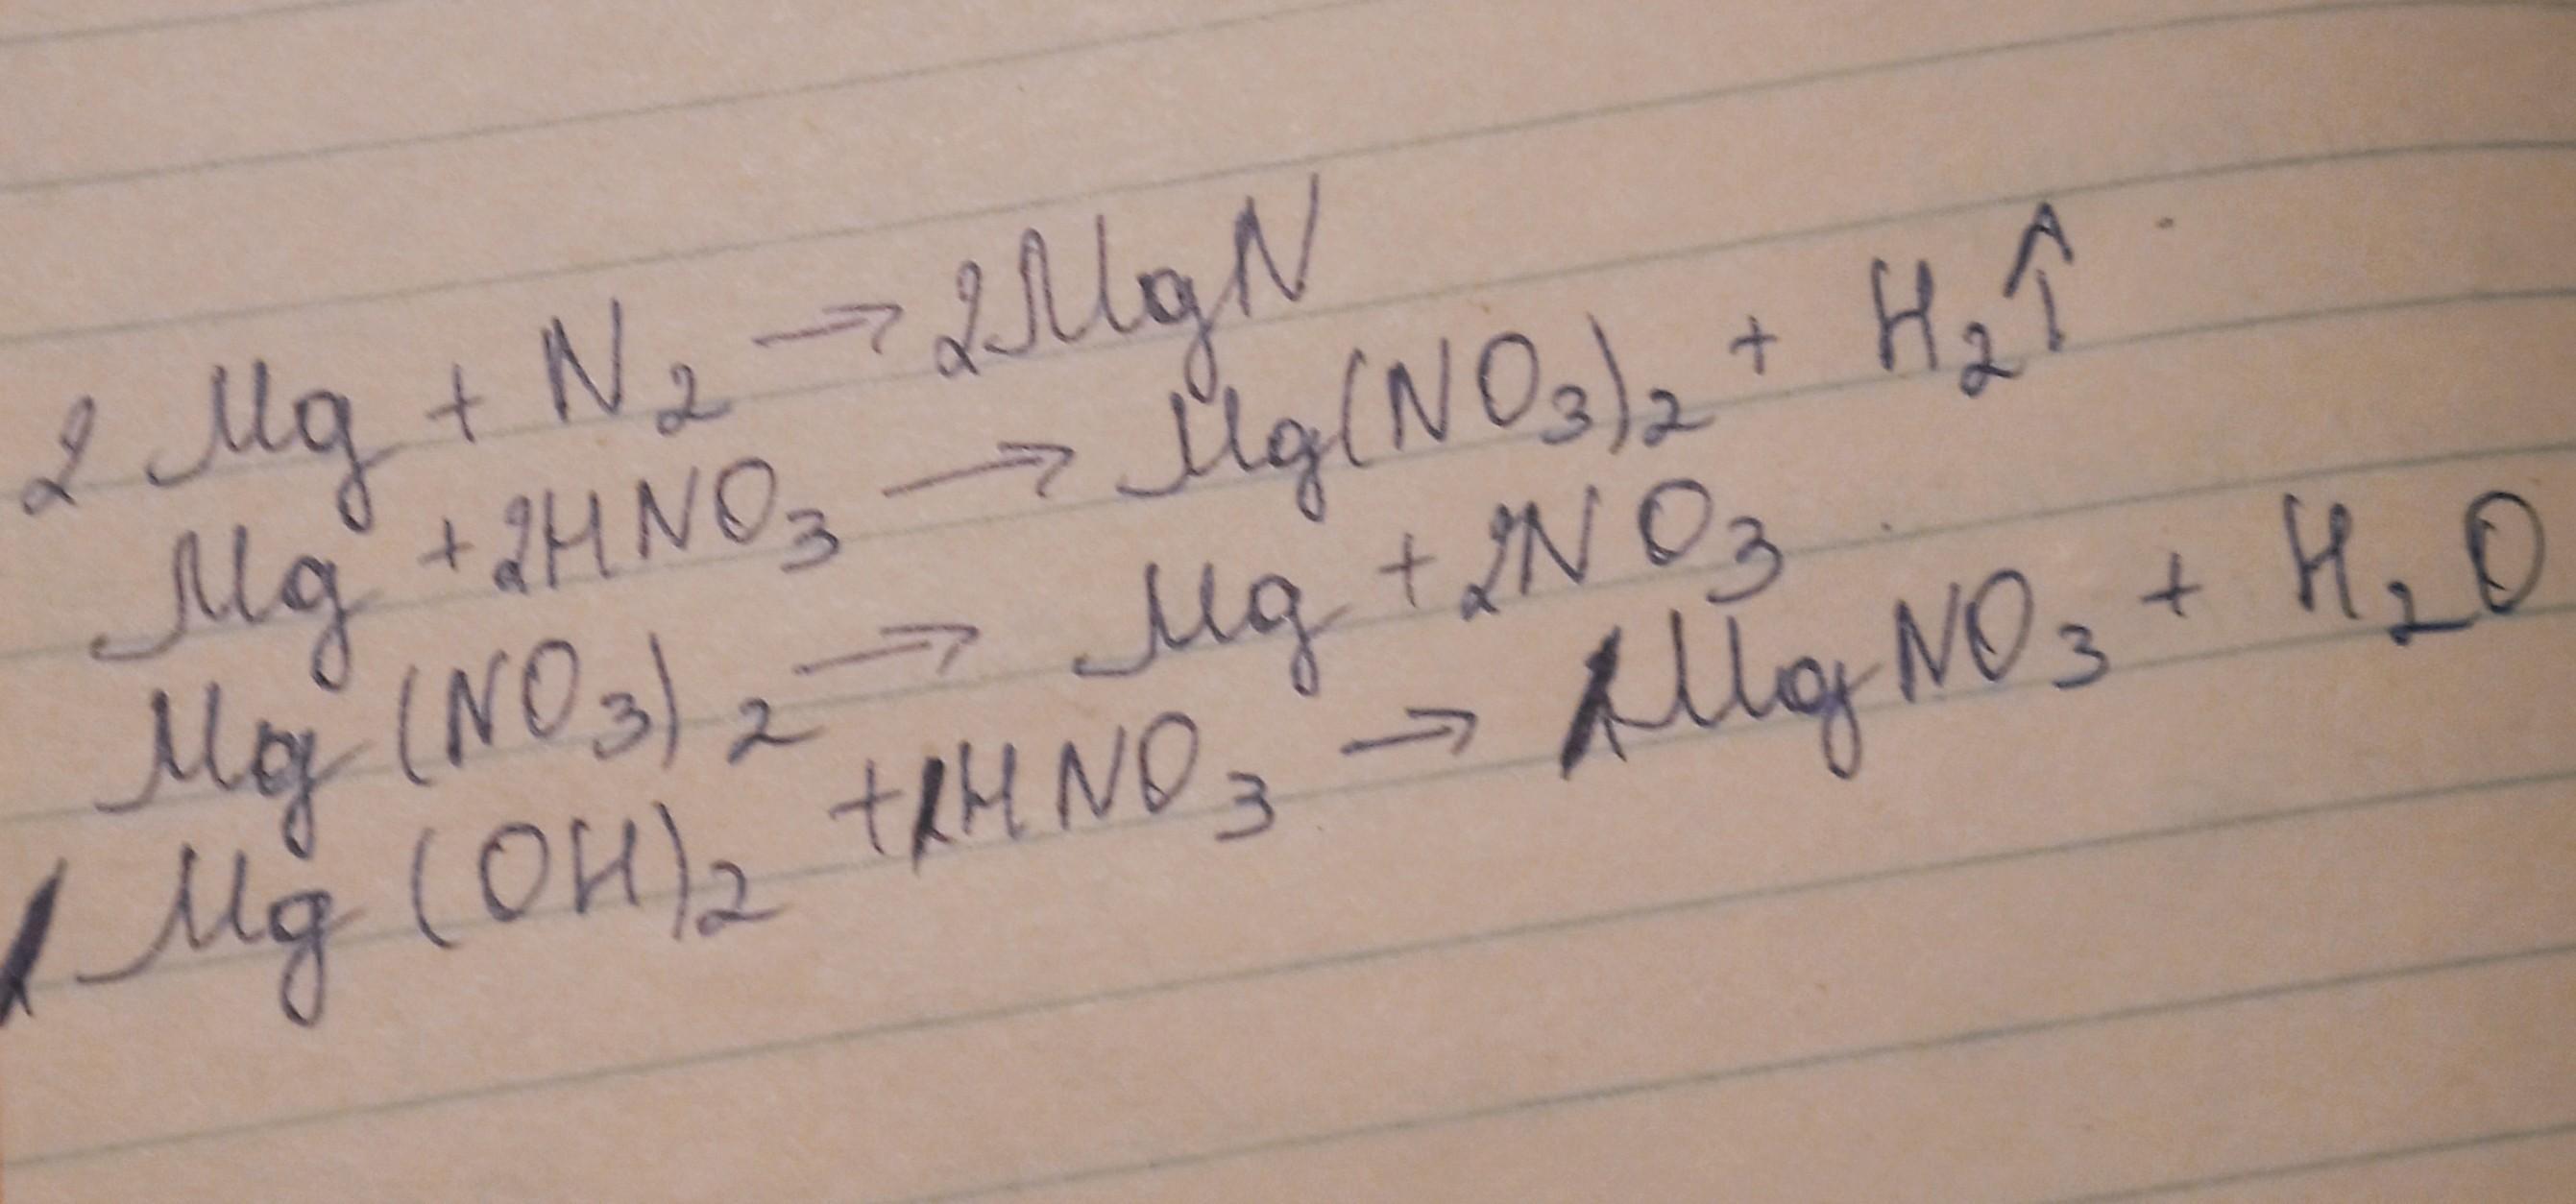 2 Mg + N2 → 2MgN
Mg + 2HNO3 → Mg(NO3)2 + H2↑
Mg (NO3)2 → Mg + 2NO3
Mg (OH)2 + HNO3 → MgNO3 + H2O